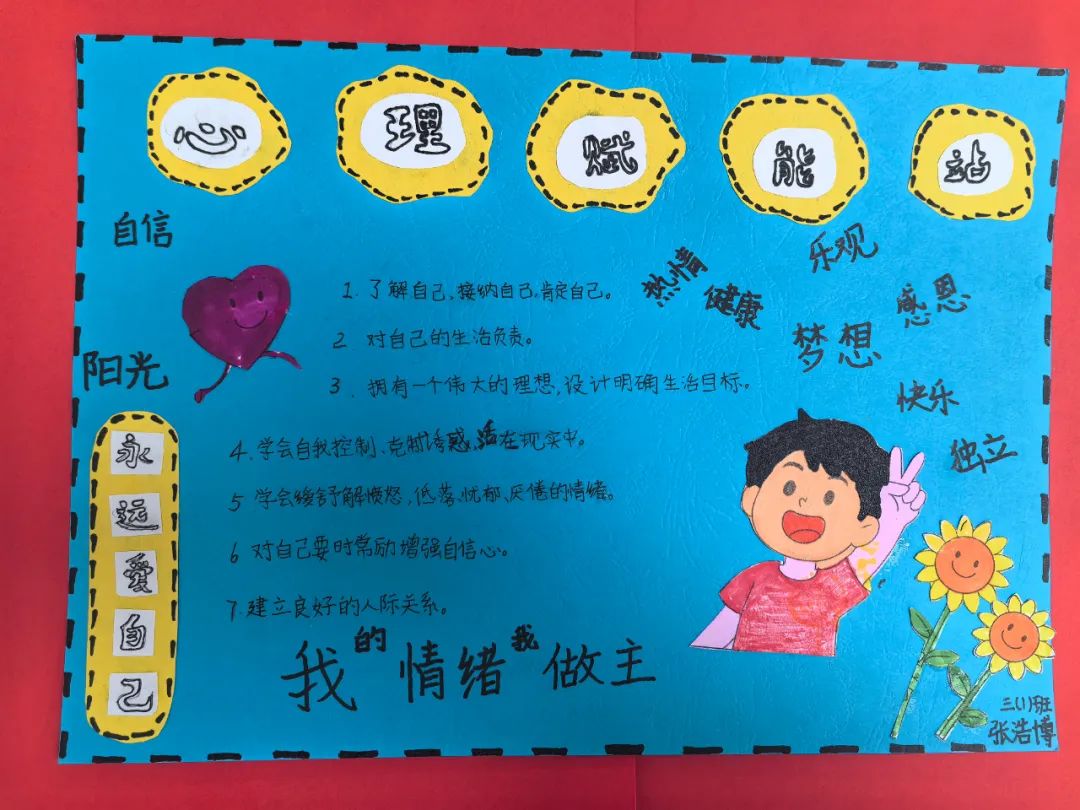 心理赋能站
自信
阳光
永远爱自己
1. 了解自己,接纳自己,肯定自己。
2 对自己的生活负责。
3. 拥有一个伟大的理想,设计明确生活目标。
4. 学会自我控制、克制诱惑,活在现实中。
5 学会缓舒解愤怒,低落、忧郁、厌倦的情绪。
6 对自己要时常励增强自信心。
7. 建立良好的人际关系。
我的情绪我做主
热情
健康
乐观
感恩
梦想
快乐
独立
三(1)班
张浩博